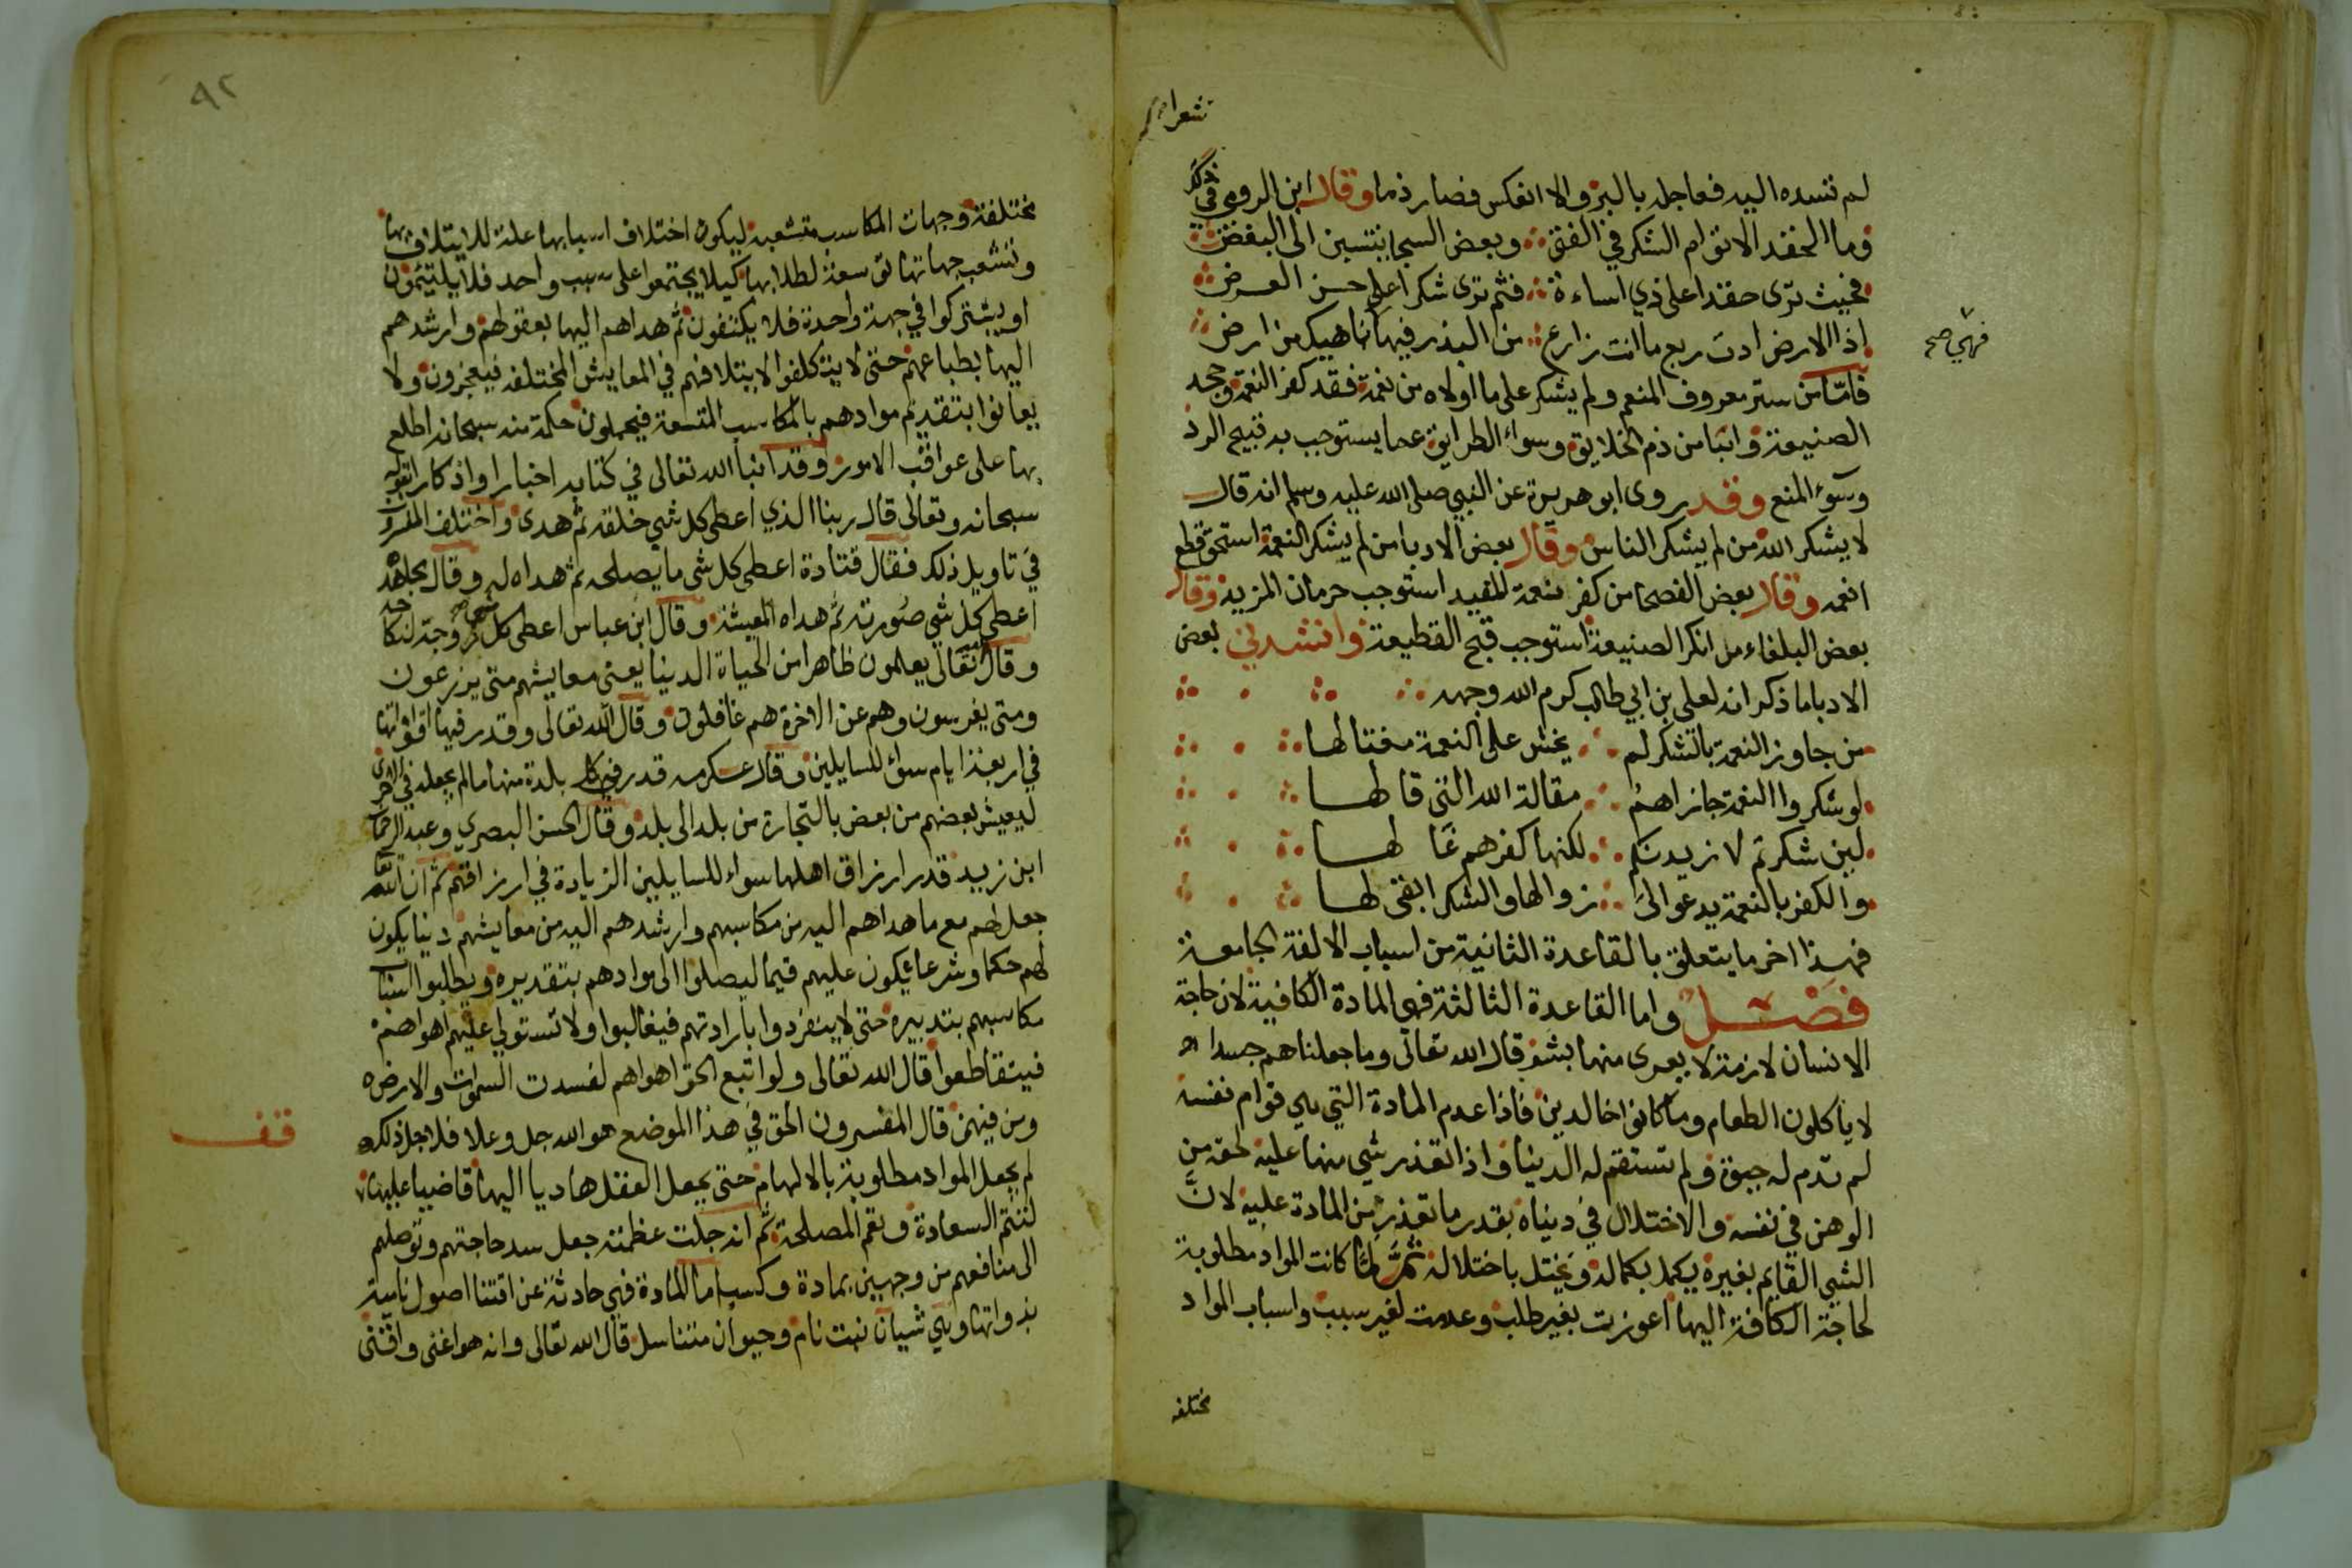 لم تسده اليه فعاجله بالبر والا انعكس فصار ذما وقال ابن الرومي في ذلك
وما الحقد الا توام الشكر في الفتى وبعض السجايا ينتسبن الى البعض
فحيث ترى حقدا على ذي اساءة فثم ترى شكرا على حسن القرض
اذا الارض ادت ريع ما انت زارع من البذر فيها ناهيك من ارض
فهي صح
فاما من ستر معروف المنعم ولم يشكر على ما اولاه من نعمة فقد كفر النعمة وجحد
الصنيعة وان من ذم الخلايق وسواء الطرايق عما يستوجب به قبيح الرد
وسوء المنع وقد روى ابو هريرة عن النبي صلى الله عليه وسلم انه قال
لا يشكر الله من لم يشكر الناس وقال بعض الادبا من لم يشكر النعمة استحق قطع
النعمه وقال بعض الفصحا من كفر نعمة المفيد استوجب حرمان المزيد وقال
بعض البلغاء من انكر الصنيعة استوجب قبح القطيعة وانشدني بعض
الادبا ما ذكر انه لعلي بن ابي طالب كرم الله وجهه
من جاوز النعمة بالشكر لم يخش على النعمة مغتالها
لو شكروا النعمة جازاهم مقالة الله التي قالها
لين شكرتم لازيدنكم لكنها كفرهم غالها
والكفر بالنعمة يدعو الى زوالها والشكر ابقى لها
فهذا اخر ما يتعلق بالقاعدة الثانية من اسباب الالفة الجامعة
فصل واما القاعدة الثالثة فهي المادة الكافية لان حاجة
الانسان لازمة لا يعرى منها بشر قال الله تعالى وما جعلناهم جسدا
لا ياكلون الطعام وما كانوا خالدين فاذا عدم المادة التي هي قوام نفسه
لم تدم له حيوة ولم تستقم له الدنيا واذا تعذر شي منها عليه لحقه من
الوهن في نفسه والاختلال في دنياه بقدر ما تعذر من المادة عليه لان
الشي القايم بغيره يكمل بكماله ويختل باختلاله ثم لما كانت المواد مطلوبة
لحاجة الكافة اليها اعوزت بغير طلب وعدمت لغير سبب واسباب المواد
مختلفه
٩٢
مختلفة وجهات المكاسب متشعبة ليكون اختلاف اسبابها علة للايتلاف بها
وتشعب جهاتها توسعة لطلابها كيلا يجتمعوا على سبب واحد فلا يلتيمون
او يشتركوا في جهة واحدة فلا يكتفون ثم هداهم اليها بعقولهم وارشدهم
اليها بطباعهم حتى لا يتكلفوا الايتلافهم في المعايش المختلفه فيعجزون ولا
يعانوا بتقديم موادهم بالمكاسب المتسعة فيجهلون حكمة منه سبحانه اطلع
بها على عواقب الامور وقد انبا الله تعالى في كتابه اخبارا واذكارا بقوله
سبحانه وتعالى قال ربنا الذي اعطى كل شي خلقه ثم هدى واختلف المفسرون
في تاويل ذلك فقال قتادة اعطى كل شى ما يصلحه ثم هداه له وقال مجاهد
اعطى كل شي صورته ثم هداه المعيشة وقال ابن عباس اعطى كل شي زوجة لنكاحه
وقال تعالى يعلمون ظاهرا من الحياة الدنيا يعنى معايشهم متى يزرعون
ومتى يغرسون وهم عن الاخرة هم غافلون وقال الله تعالى وقدر فيها اقواتها
في اربعة ايام سواء للسايلين وقال عكرمه قدر في كل بلدة منها ما لم يجعله في الاخرى
ليعيش بعضهم من بعض بالتجارة من بلد الى بلد وقال الحسن البصري وعبد الرحمان
ابن زيد قدر ارزاق اهلها سواء للسايلين الزيادة في ارزاقهم ثم ان الله
جعل لهم مع ما هداهم اليه من مكاسبهم وارشدهم اليه من معايشهم دينا يكون
لهم حكما وشرعا يكون عليهم قيما ليصلوا الى موادهم بتقديره ويطلبوا اسباب
مكاسبهم بتدبيره حتى لا ينفردوا بارادتهم فيغالبوا ولا تستولي عليهم اهواهم
فيتقاطعوا قال الله تعالى ولو اتبع الحق اهواهم لفسدت السموات والارض
ومن فيهن قال المفسرون الحق في هذا الموضع هو الله جل وعلا فلاجل ذلك
قف
لم يجعل المواد مطلوبة بالالهام حتى يجعل العقل هاديا اليها قاضيا عليها
لتتم السعادة وتعم المصلحة ثم انه جلت عظمته جعل سد حاجتهم وتوصلهم
الى منافعهم من وجهين بمادة وكسب اما المادة فهي حادثة عن اقتنا اصول نامية
بذواتها وهي شيان نبت نام وحيوان متناسل قال الله تعالى وانه هو اغنى واقنى